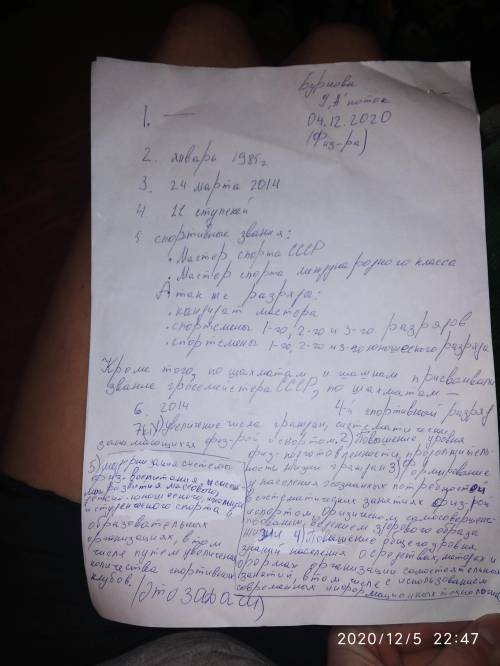 9 "А" поток
04.12.2020
(Физ-ра)
1. —
2. январь 1985г
3. 24 марта 2014
4 11 ступеней
5 спортивные звания:
• Мастер спорта СССР
• Мастер спорта международного класса
А так же разряды:
• кандидат мастера
• спортсмены 1-го, 2-го и 3-го разрядов
• спортсмены 1-го, 2-го и 3-го юношеского разряда
Кроме того, по шахматам и шашкам присваивали
звание гроссмейстера СССР, по шахматам –
4-й спортивный разряд
6. 2014
Увеличение числа граждан, систематически
занимающихся физ-рой и спортом. 2) Повышение уровня
физ. подготовленности, продолжитель-
ности жизни граждан 3) Формирование
у населения осознанных потребностей
в систематических занятиях физ-рой
и спортом, физическом самосовершенс-
твовании, ведением здорового образа
жизни 4) Повышение общего уровня
знаний населения о средствах, методах и
формах организации самостоятельных
занятий, в том числе с использованием
современных информационных технологий
5) модернизация системы
физ. воспитания и систе-
мы развития массового,
детско-юношеского, школьного
и студенческого спорта в
образовательных
организациях, в том
числе путем увеличения
количества спортивных
клубов.
(Это задачи)
2020/12/5 22:47